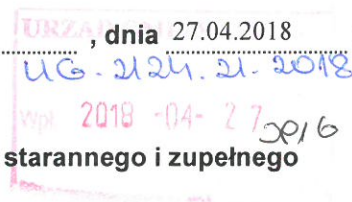 URZĄD
, dnia 27.04.2018
UG. 2124. 21. 2018
Wpł. 2018 -04- 27
starannego i zupełnego